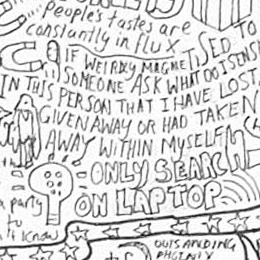 people's tastes are
constantly in flux
IF WEIRDLY MAGNETISED TO
SOMEONE ASK WHAT DO I SENSE
IN THIS PERSON THAT I HAVE LOST,
GIVEN AWAY OR HAD TAKEN
AWAY WITHIN MYSELF
ONLY SEARCH
ON LAPTOP
a party
to
know
OUTSTANDING